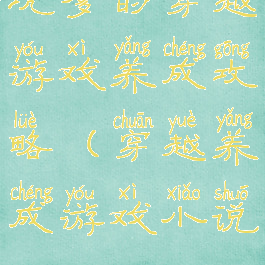 的穿越
yóu xì yǎng chéng gōng
游戏养成攻
lüè chuān yuè yǎng
略（穿越养
chéng yóu xì xiǎo shuō
成游戏小说